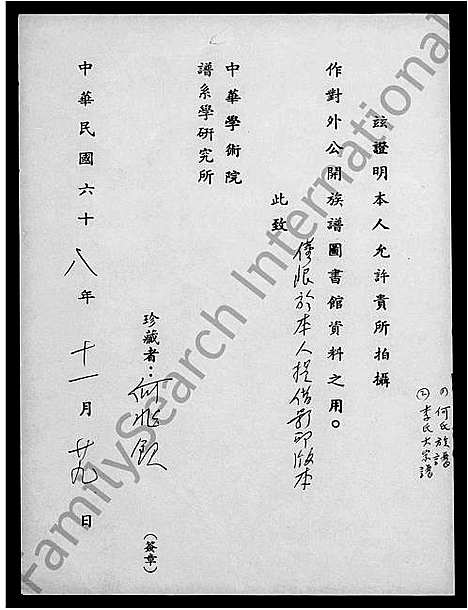 茲證明本人允許貴所拍攝
作對外公開族譜圖書館資料之用。
僅限於本人提借影印版本
此致
中華學術院
譜系學研究所
珍藏者：何兆欽
(簽章)
中華民國六十八年十一月廿九日
(1)何氏族譜
(2)李氏大宗譜
FamilySearch International